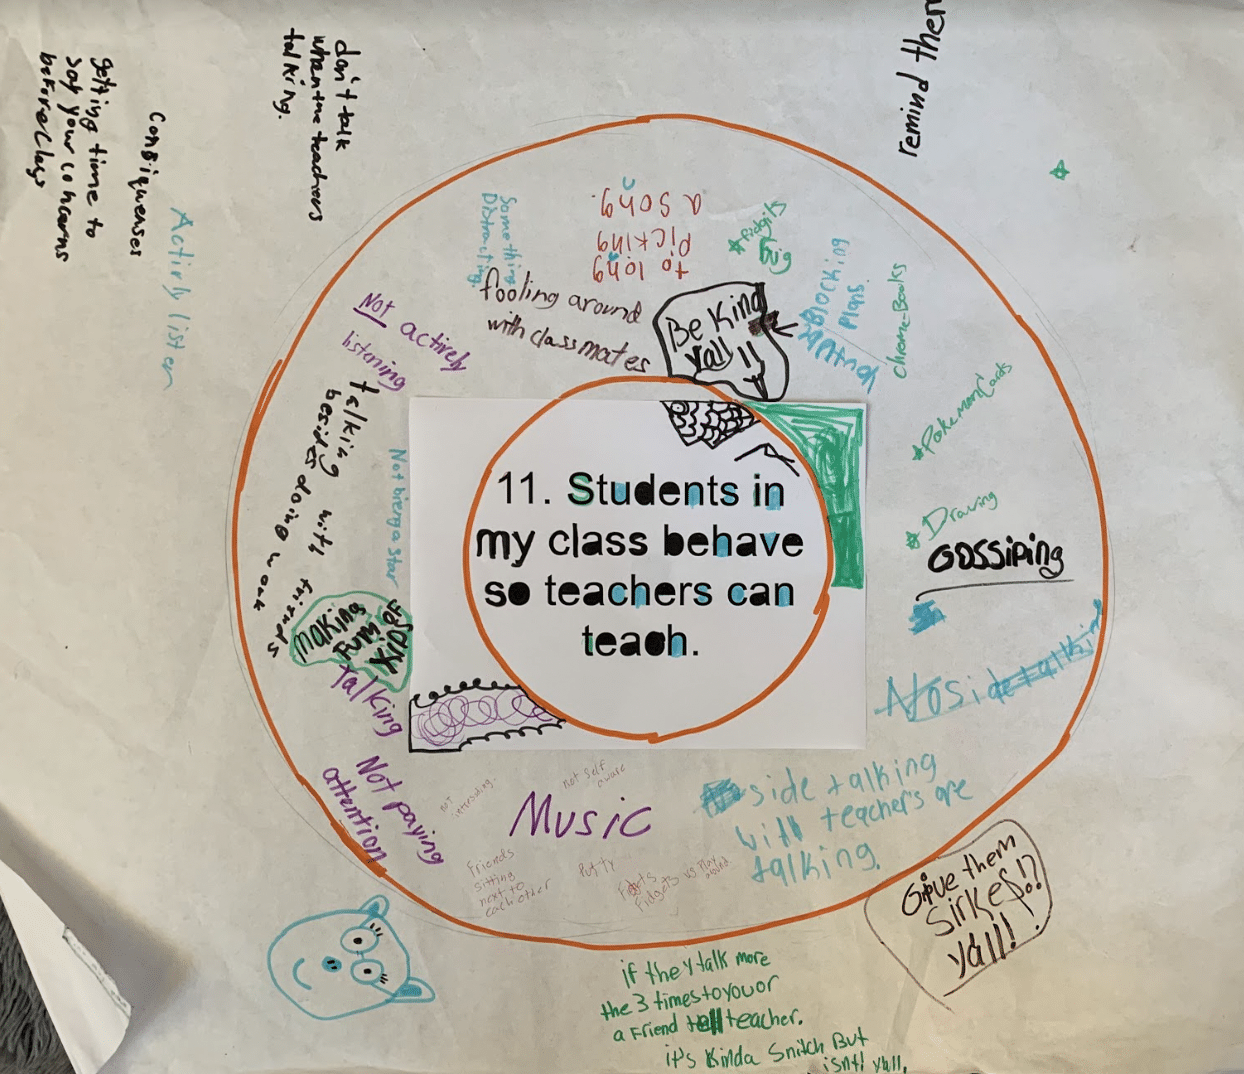 getting time to
say your concerns
before class
Consiquenses
Activly listen
don't talk
when the teachers
talking.
remind them
Something
Distracting.
to long
picking
a song.
fidgits
Big
Blocking
Plans.
chrome-Books
fooling around
with classmates
Be Kind
yall !!
Not actively
listening
talking with friends
besides doing work
Not bienga star
making
fun of
talking
Not paying
attention
Pokemon Cards
Drawing
GOSSiping
No side talking
11. Students in
my class behave
so teachers can
teach.
not
interesting.
not self
aware
Music
side talking
will teacher's are
talking.
Friends
sitting
next to
each other
Putty
Fidgets vs Play
around
Give them
Sirkes!?
Yall!
if they talk more
the 3 times to you or
a Friend tell teacher.
it's Kinda Snitch But
isnt! y'all.